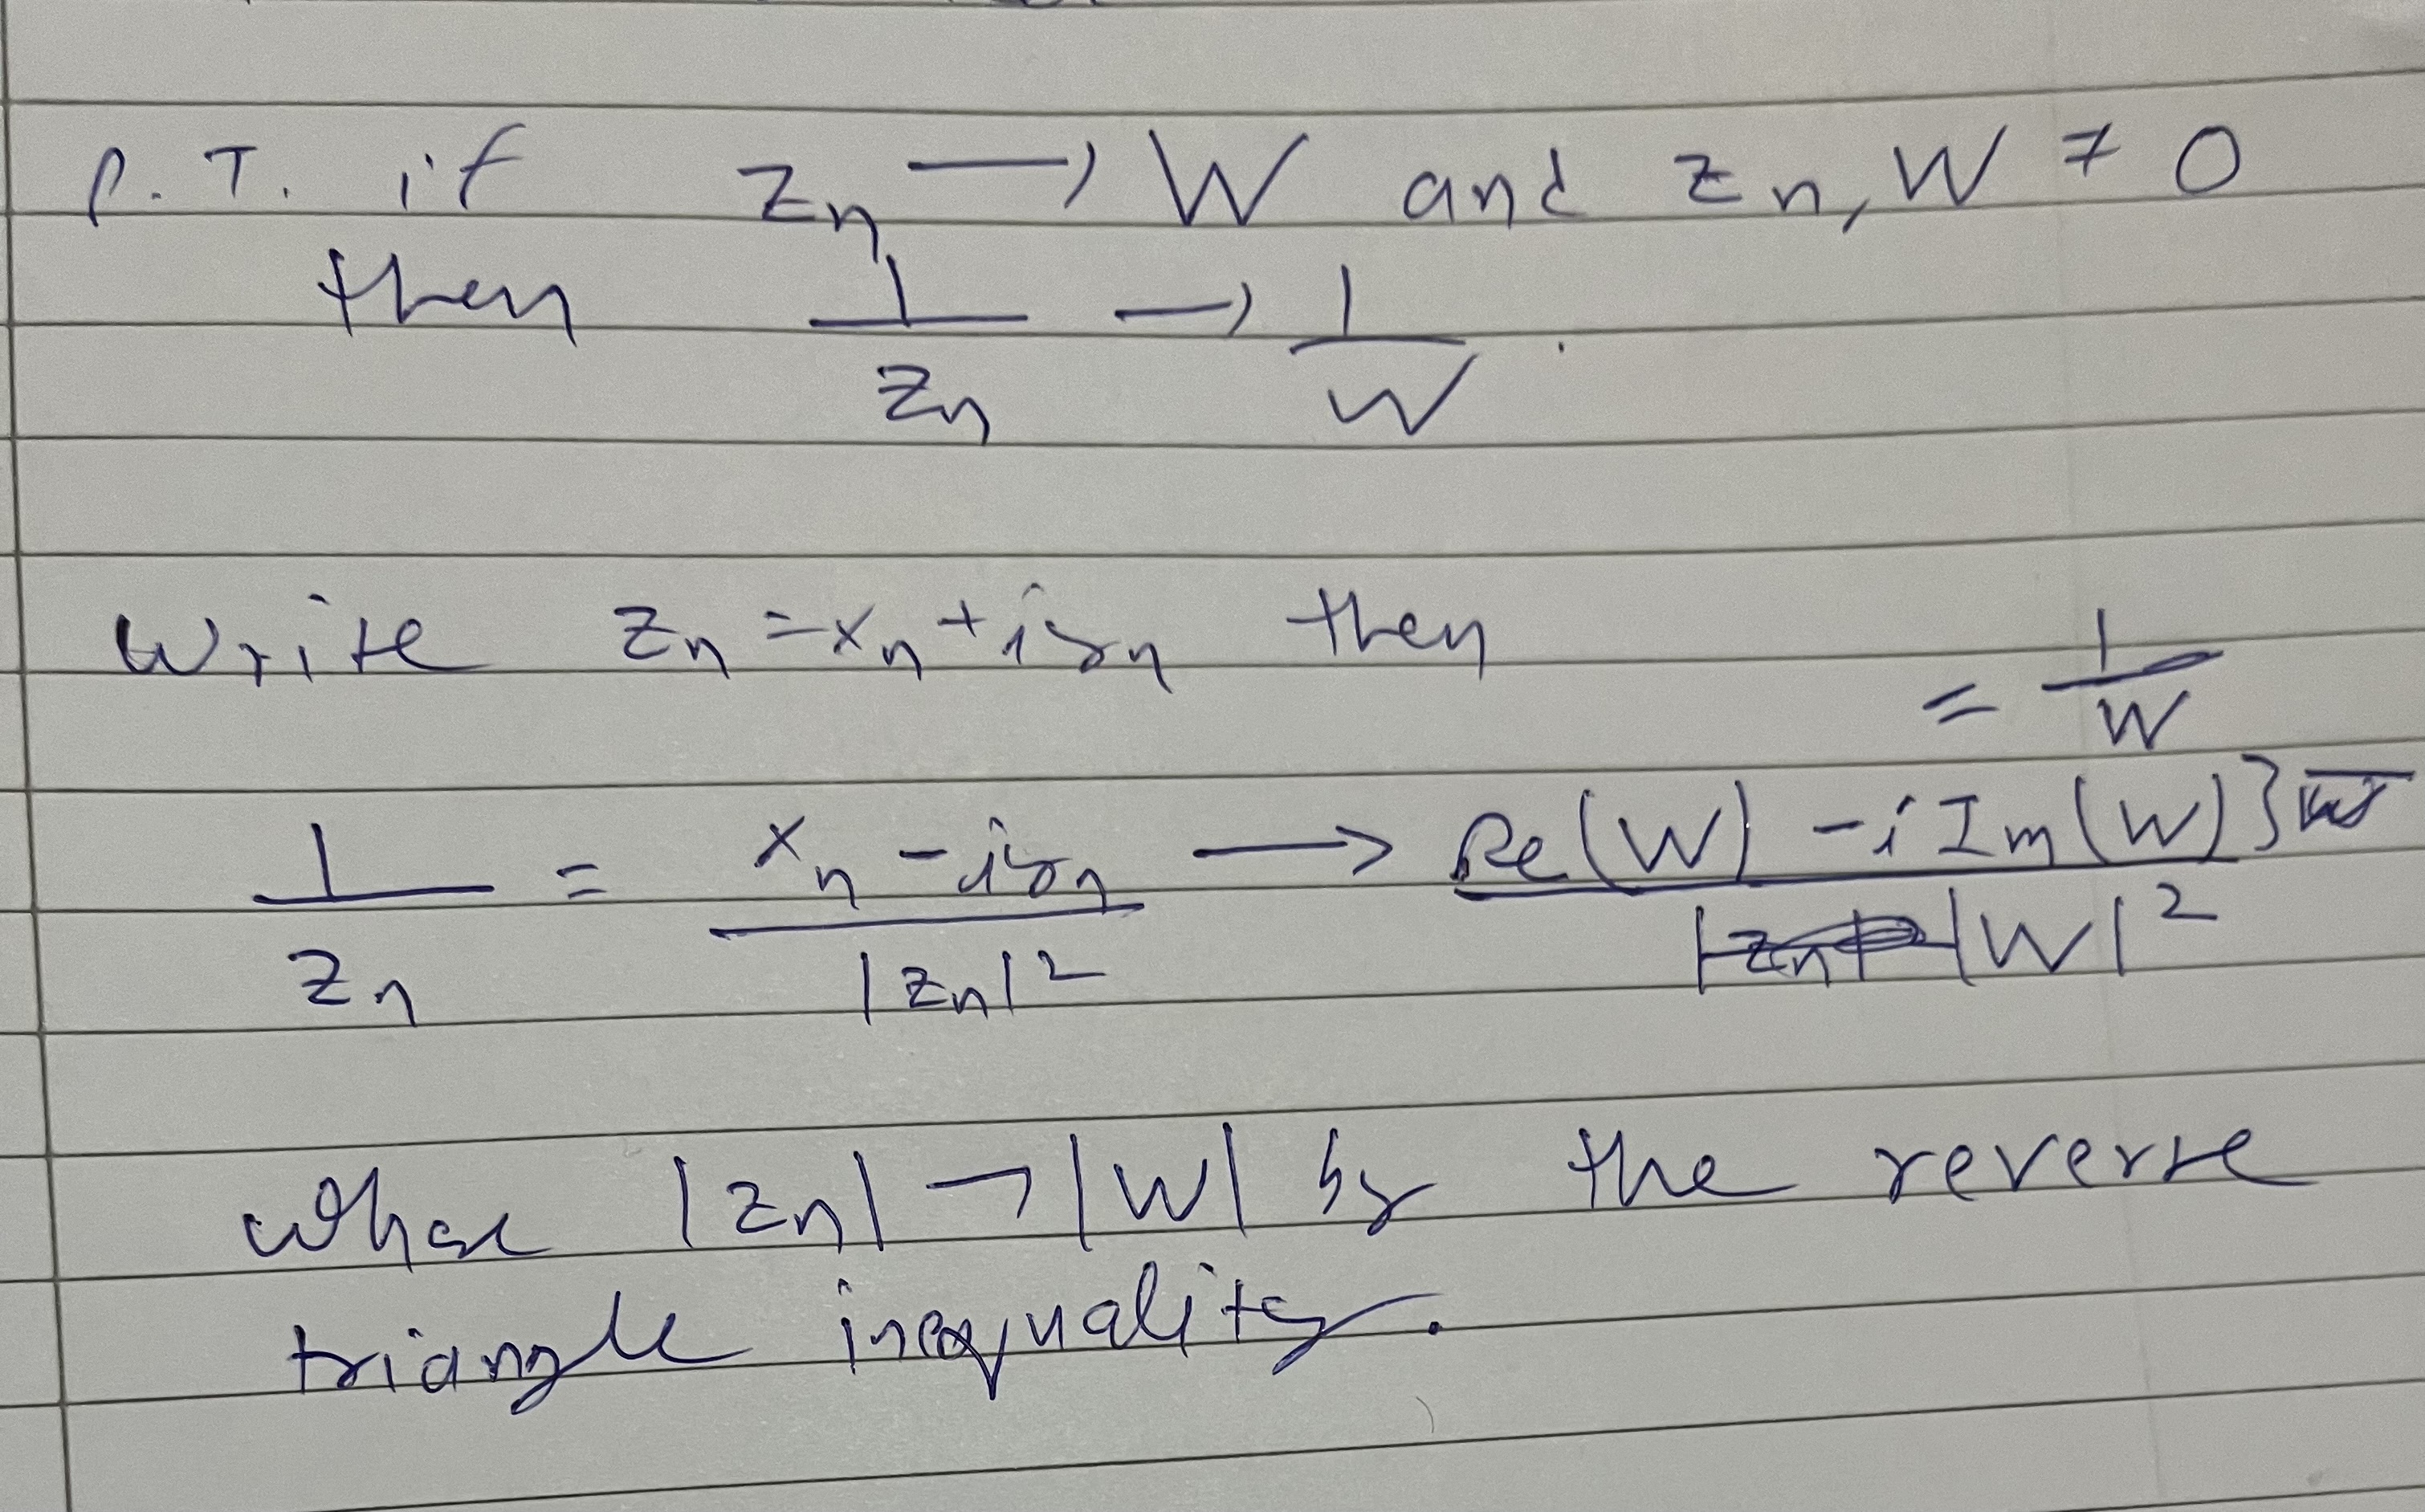 P.T. if zₙ → W and zₙ, W ≠ 0
then 1/zₙ → 1/W.
Write zₙ = xₙ + iyₙ then
1/zₙ = (xₙ - iyₙ)/|zₙ|² → (Re(W) - i Im(W))/|W|² = 1/W
where |zₙ| → |W| by the reverse
triangle inequality.